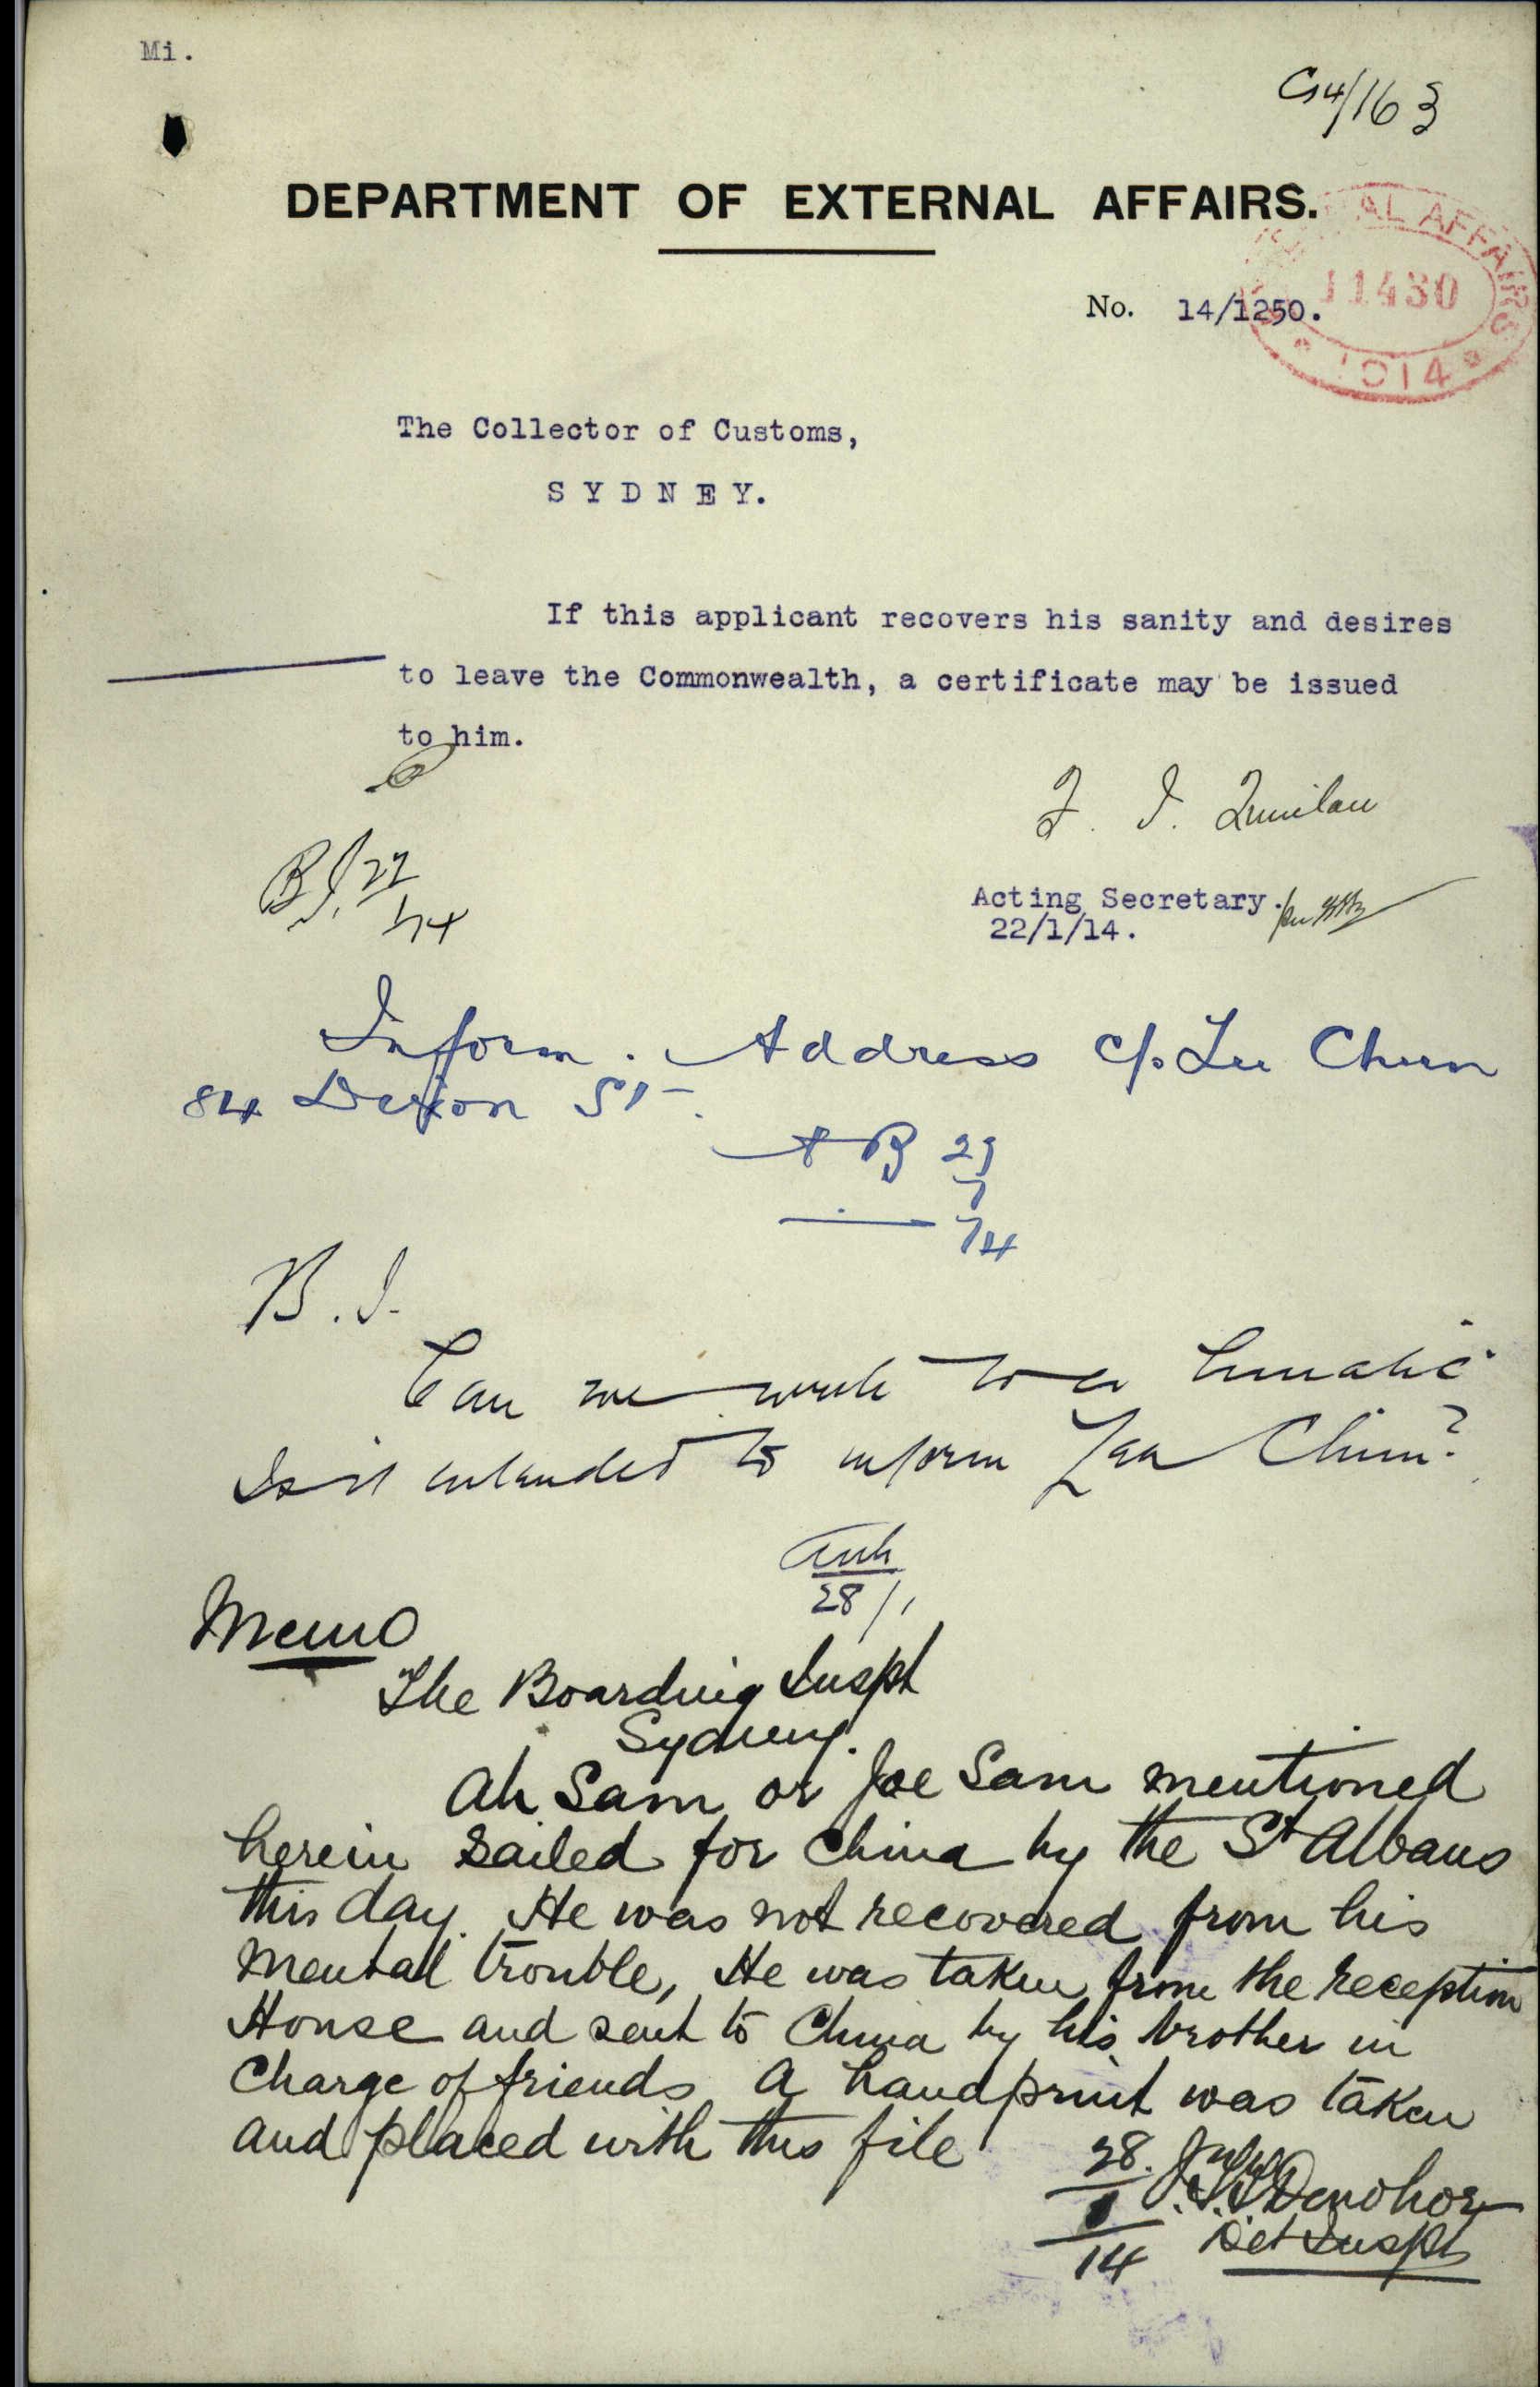 Mi.
G14/163
DEPARTMENT OF EXTERNAL AFFAIRS.
AL AFFAIRS
11430
1914
No. 14/1250.
The Collector of Customs,
SYDNEY.
If this applicant recovers his sanity and desires
to leave the Commonwealth, a certificate may be issued
to him.
F. J. Quinlan
Acting Secretary.
22/1/14.
B.I.
Inform. Address c/o Lee Chun
84 Dixon St.
B.I.
Can we write to a lunatic
Is it intended to inform Lee Chun?
28/1
Memo
The Boarding Inspt
Sydney.
Ah Sam or Joe Sam mentioned
herein sailed for China by the St Albans
this day. He was not recovered from his
mental trouble, He was taken from the reception
House and sent to China by his brother in
charge of friends. A handprint was taken
and placed with this file
28
14
Donohoe
Det Inspt